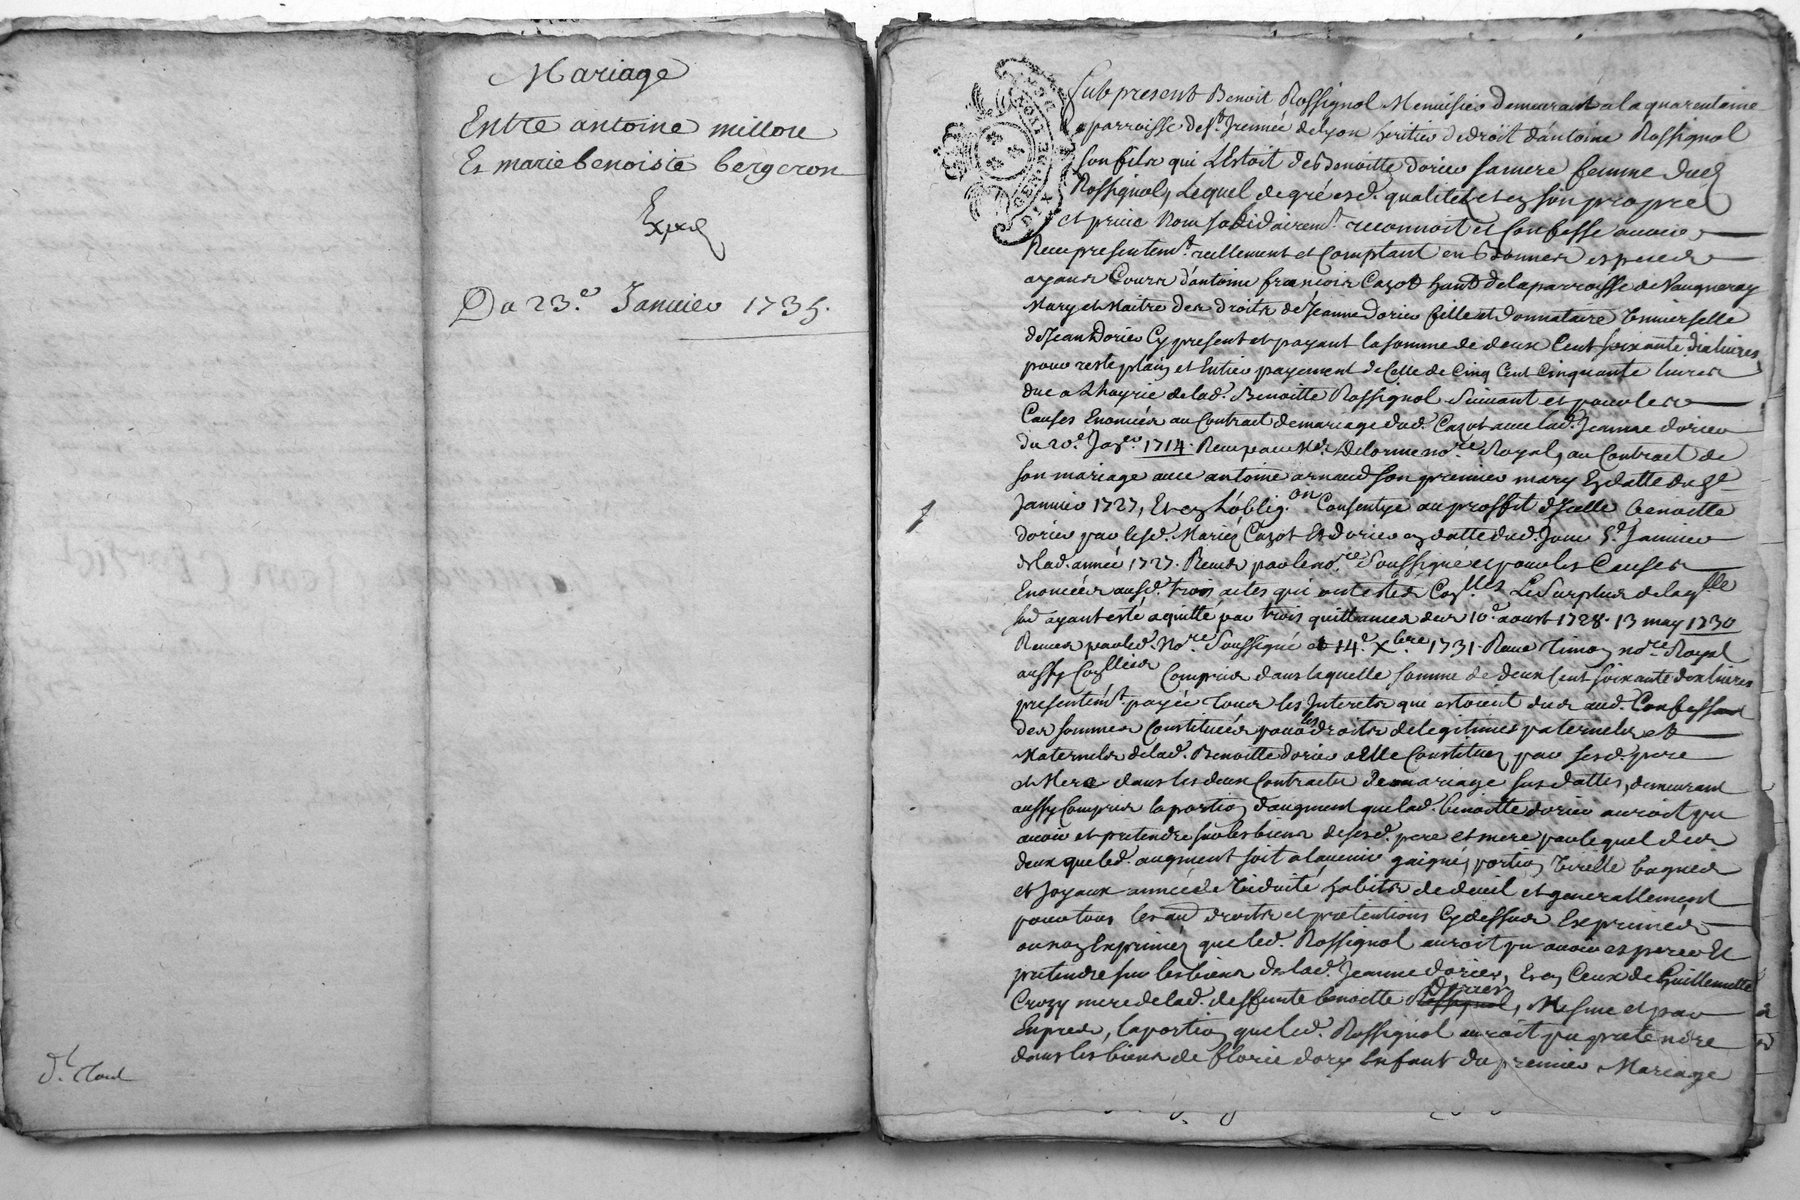 Mariage
Entre antoine millou
Et marie benoiste bergeron
Exped
Du 23.e Janvier 1735.
d.t Clond
GEN. DE LYON
DIX
fut present Benoit Rossignol Menuisier demeurant a la quarentaine
parroisse de St. Irennée de Lyon heritier de droit d'antoine Rossignol
son fils qui L'Estoit de Benoitte dorier sa mere femme dud.
Rossignol, Lequel de gré esd. qualités et en son propre
et privé Nom solidairemt. reconnoit et Confesse avoir
Receu presentemt. reellement et Comptant en bonnes especes
ayans Cours d'antoine francois Cazot hant de la parroisse de Vaugneray
Mary et Maitre des droits de Jeanne Dorier fille et donnataire Universelle
de Jean Dorier Cy present et payant la somme de deux Cent soixante dix livres
pour reste plain et Entier payement de Celle de Cinq Cent Cinquante livres
due a L'hoyrie de lad. Benoitte Rossignol Suivant et pour les
Causes Enoncées au Contract de mariage dud. Cazot avec lad. Jeanne dorier
du 20.e 1714. Receu par Me. Delorme no.re Royal, au Contract de
son mariage avec antoine arnaud son premier mary En datte du 5e
Janvier 1727, Et en L'oblig.on Consentye au proffit d'Icelle benoitte
dorier par lesd. Mariés Cazot Et dorier en datte dud. Jour 5.e Janvier
de lad. année 1727. Receus par le no.re Soussigné et pour les Causes
Enoncées ausd. trois actes qui ont estés Con.llés Le Surplus de laq.lle
so.e ayant esté aquitté par trois quittances des 10.e aoust 1728. 13 may 1730
Receues par led. No.re Soussigné et 14.e Xbre 1731. Receue Timon no.re Royal
aussy Con.llées Compris dans laquelle somme de deux Cent soixante dix livres
presentemt. payée Tous les Interets que estoient dus aud. Confessant
des sommes Constituées pour les droits de legitimes paternels et
Maternels de lad. Benoitte dorier a Elle Constituez par sesd. pere
et Mere dans les deux Contracts de mariage sus dattés, demeurant
aussy Compris la portion d'augment que lad. benoitte dorier auroit pu
avoir et pretendre sur les biens de sesd. pere et mere par lequel des
deux que led. augment soit a l'avenir gaigné, portion Virille bagues
et Joyaux année de Viduité habits de deuil et generallement
pour tous les aud. droits et pretentions Cy dessus Exprimés
ou non Exprimez que led. Rossignol auroit pu avoir esperer et
pretendre sur les biens de lad. Jeanne dorier, Et en Ceux de Guillemette
Crozy mere de lad. deffunte benoitte Rossignol dorier, Mesme et par
Exprès, la portion que led. Rossignol auroit pu pretendre
dans les biens de florie dory Enfant du premier Mariage